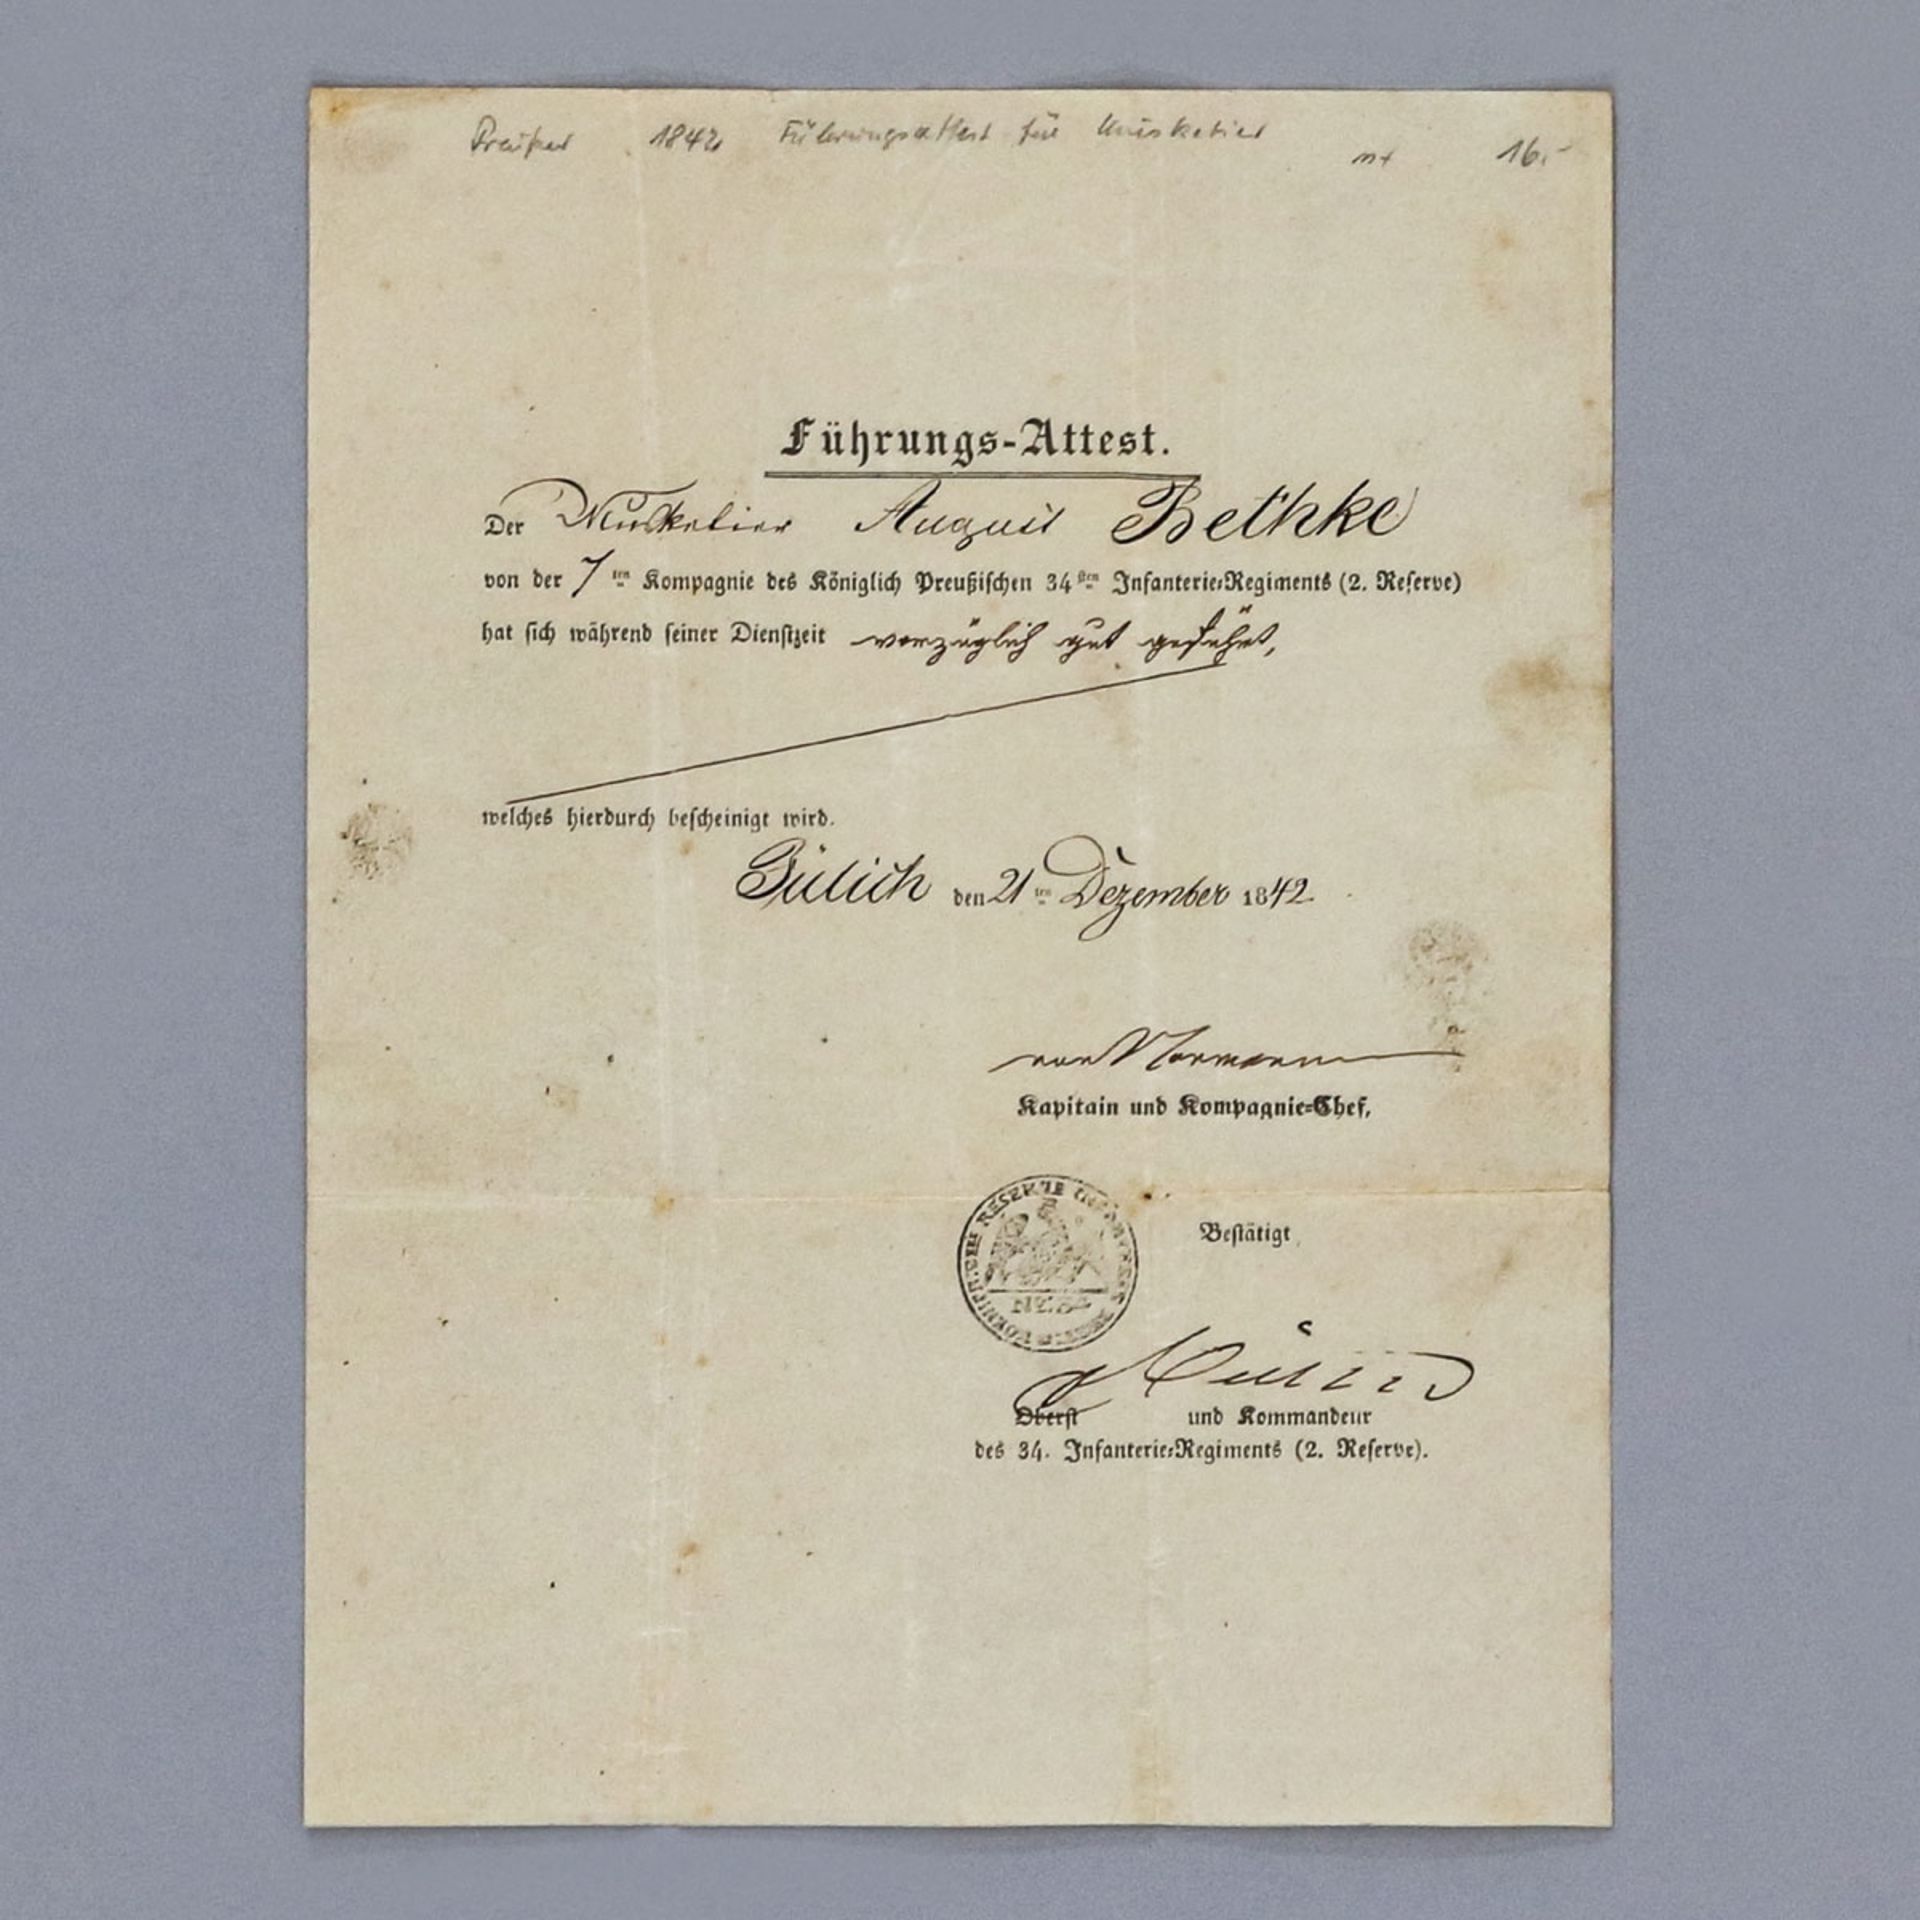 Preußen 1842 Führungsattest für Musketier 16.-
Führungs-Attest.
Der Musketier August Bethke
von der 7ten Kompagnie des Königlich Preußischen 34sten Infanterie-Regiments (2. Reserve)
hat sich während seiner Dienstzeit vorzüglich gut geführt,
welches hierdurch bescheinigt wird.
Jülich den 21ten Dezember 1842
von Normann
Kapitain und Kompagnie-Chef,
RESERVE
Bestätigt
Oberst und Kommandeur
des 34. Infanterie-Regiments (2. Reserve).